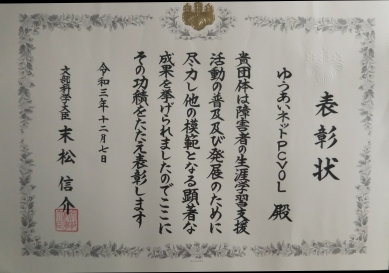 表彰状
ゆうあいネットPCVOL 殿
貴団体は障害者の生涯学習支援
活動の普及及び発展のために
尽力し他の模範となる顕著な
成果を挙げられましたのでここに
その功績をたたえ表彰します
令和三年十二月七日
文部科学大臣 末松信介